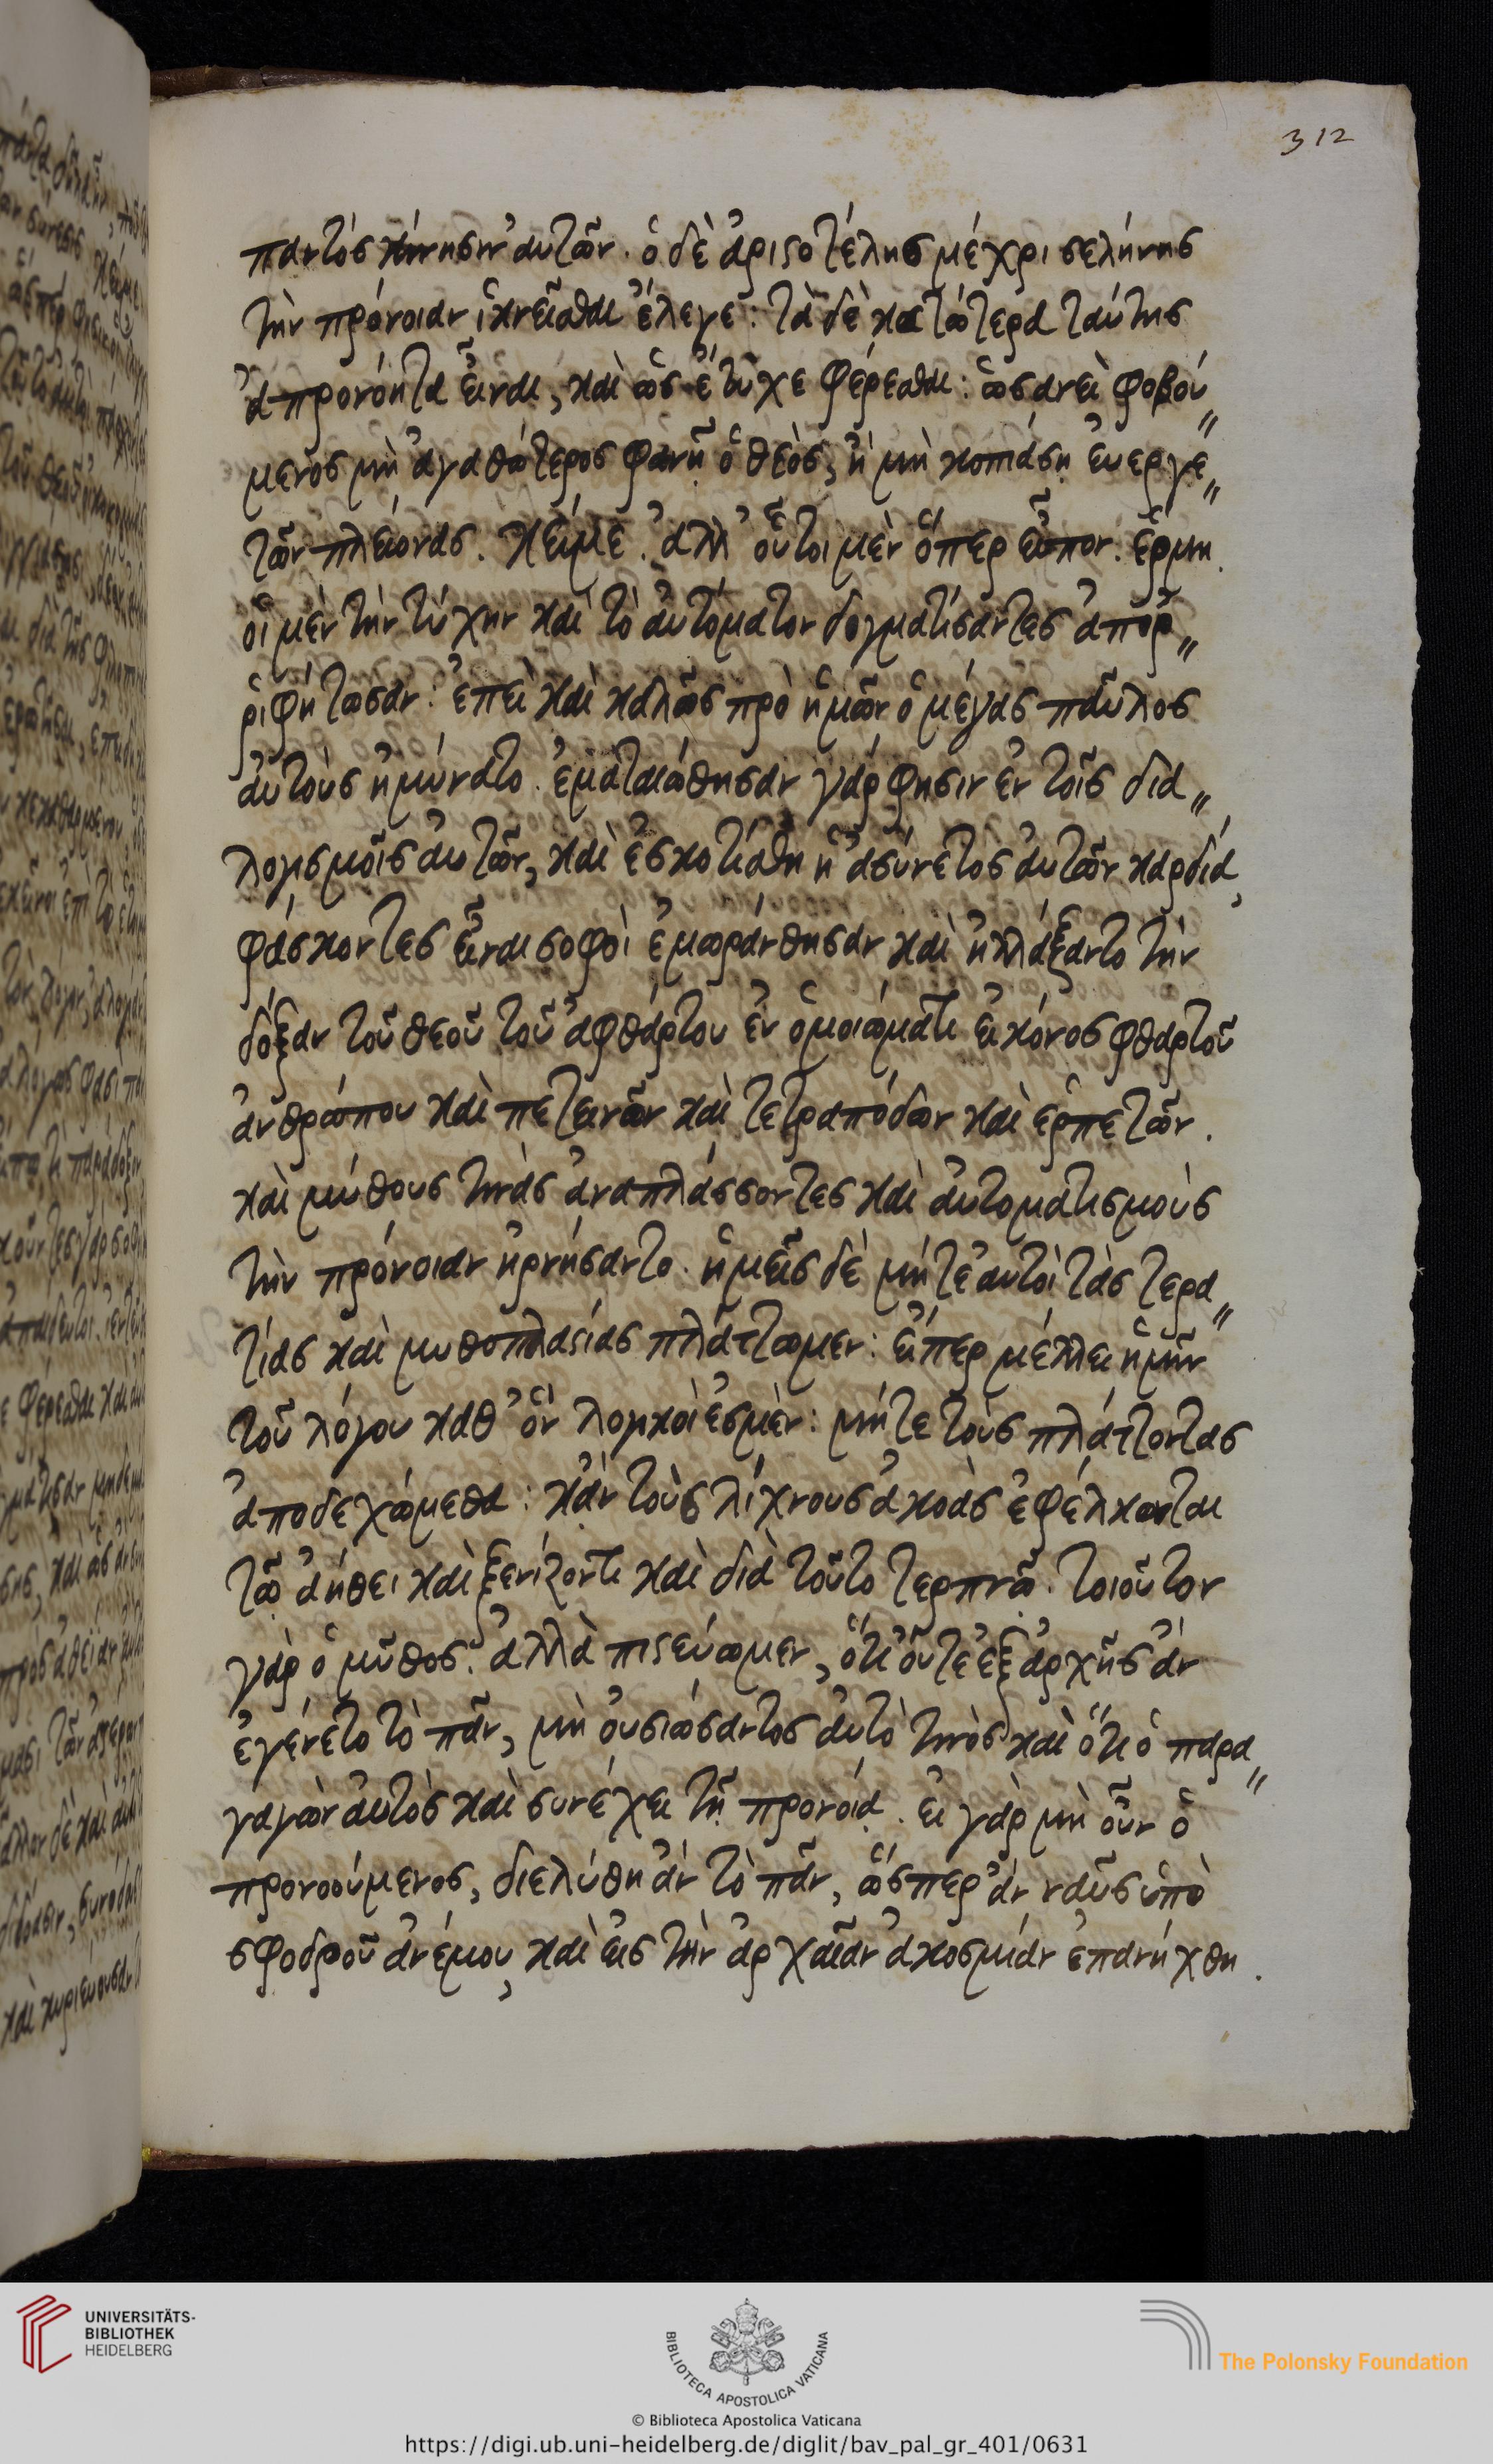 312
παντὸς κίνησιν αὐτῶν. ὁ δὲ ἀριστοτέλης μέχρι σελήνης
τὴν πρόνοιαν ἱκνεῖσθαι ἔλεγε: τὰ δὲ κατώτερα ταύτης
ἀπρονόητα εἶναι, καὶ ὡς ἔτυχε φέρεσθαι: ὡσανεὶ φοβού〃
μενος μὴ ἀγαθώτερος φανῇ ὁ θεὸς, ἢ μὴ κοπιάσῃ εὐεργε〃
τῶν πλείονας. κείμε. ἀλλ' οὗτοι μὲν ὅπερ εἶπον. ἑρμη.
οἱ μὲν τὴν τύχην καὶ τὸ αὐτόματον δογματίσαντες ἀπορ〃
ῥιφήτωσαν: ἐπεὶ καὶ καλῶς πρὸ ἡμῶν ὁ μέγας παῦλος
αὐτοὺς ἠμύνατο. ἐματαιώθησαν γάρ φησιν ἐν τοῖς δια〃
λογισμοῖς αὐτῶν, καὶ ἐσκοτίσθη ἡ ἀσύνετος αὐτῶν καρδία,
φάσκοντες εἶναι σοφοὶ ἐμωράνθησαν καὶ ἠλλάξαντο τὴν
δόξαν τοῦ θεοῦ τοῦ ἀφθάρτου ἐν ὁμοιώματι εἰκόνος φθαρτοῦ
ἀνθρώπου καὶ πετεινῶν καὶ τετραπόδων καὶ ἑρπετῶν.
καὶ μύθους τινὰς ἀναπλάσσοντες καὶ αὐτοματισμοὺς
τὴν πρόνοιαν ἠρνήσαντο. ἡμεῖς δὲ μήτε αὐτοὶ τὰς τερα〃
τίας καὶ μυθοπλαστίας πλάττωμεν: εἴπερ μέλλει ἡμῖν
τοῦ λόγου καθ' ὃν λογικοὶ ἐσμὲν: μήτε τοὺς πλάττοντας
ἀποδεχώμεθα: κἂν τοὺς λίχνους ἀκοὰς ἐφέλκωνται
τῷ ἀήθει καὶ ξενίζοντι καὶ διὰ τοῦτο τερπνῷ. τοιοῦτον
γὰρ ὁ μῦθος. ἀλλὰ πιστεύωμεν, ὅτι οὔτε ἐξ ἀρχῆς ἂν
ἐγένετο τὸ πᾶν, μὴ οὐσιώσαντος αὐτὸ τινὸς καὶ ὅτι ὁ παρα〃
γαγὼν αὐτὸς καὶ συνέχει τῇ προνοίᾳ. εἰ γὰρ μὴ οὖν ὁ
προνοούμενος, διελύθη ἂν τὸ πᾶν, ὥσπερ ἂν ναῦς ὑπὸ
σφοδροῦ ἀνέμου, καὶ εἰς τὴν ἀρχαῖαν ἀκοσμίαν ἐπανήχθη.
UNIVERSITÄTS-
BIBLIOTHEK
HEIDELBERG
BIBLIOTECA APOSTOLICA VATICANA
The Polonsky Foundation
© Biblioteca Apostolica Vaticana
https://digi.ub.uni-heidelberg.de/diglit/bav_pal_gr_401/0631